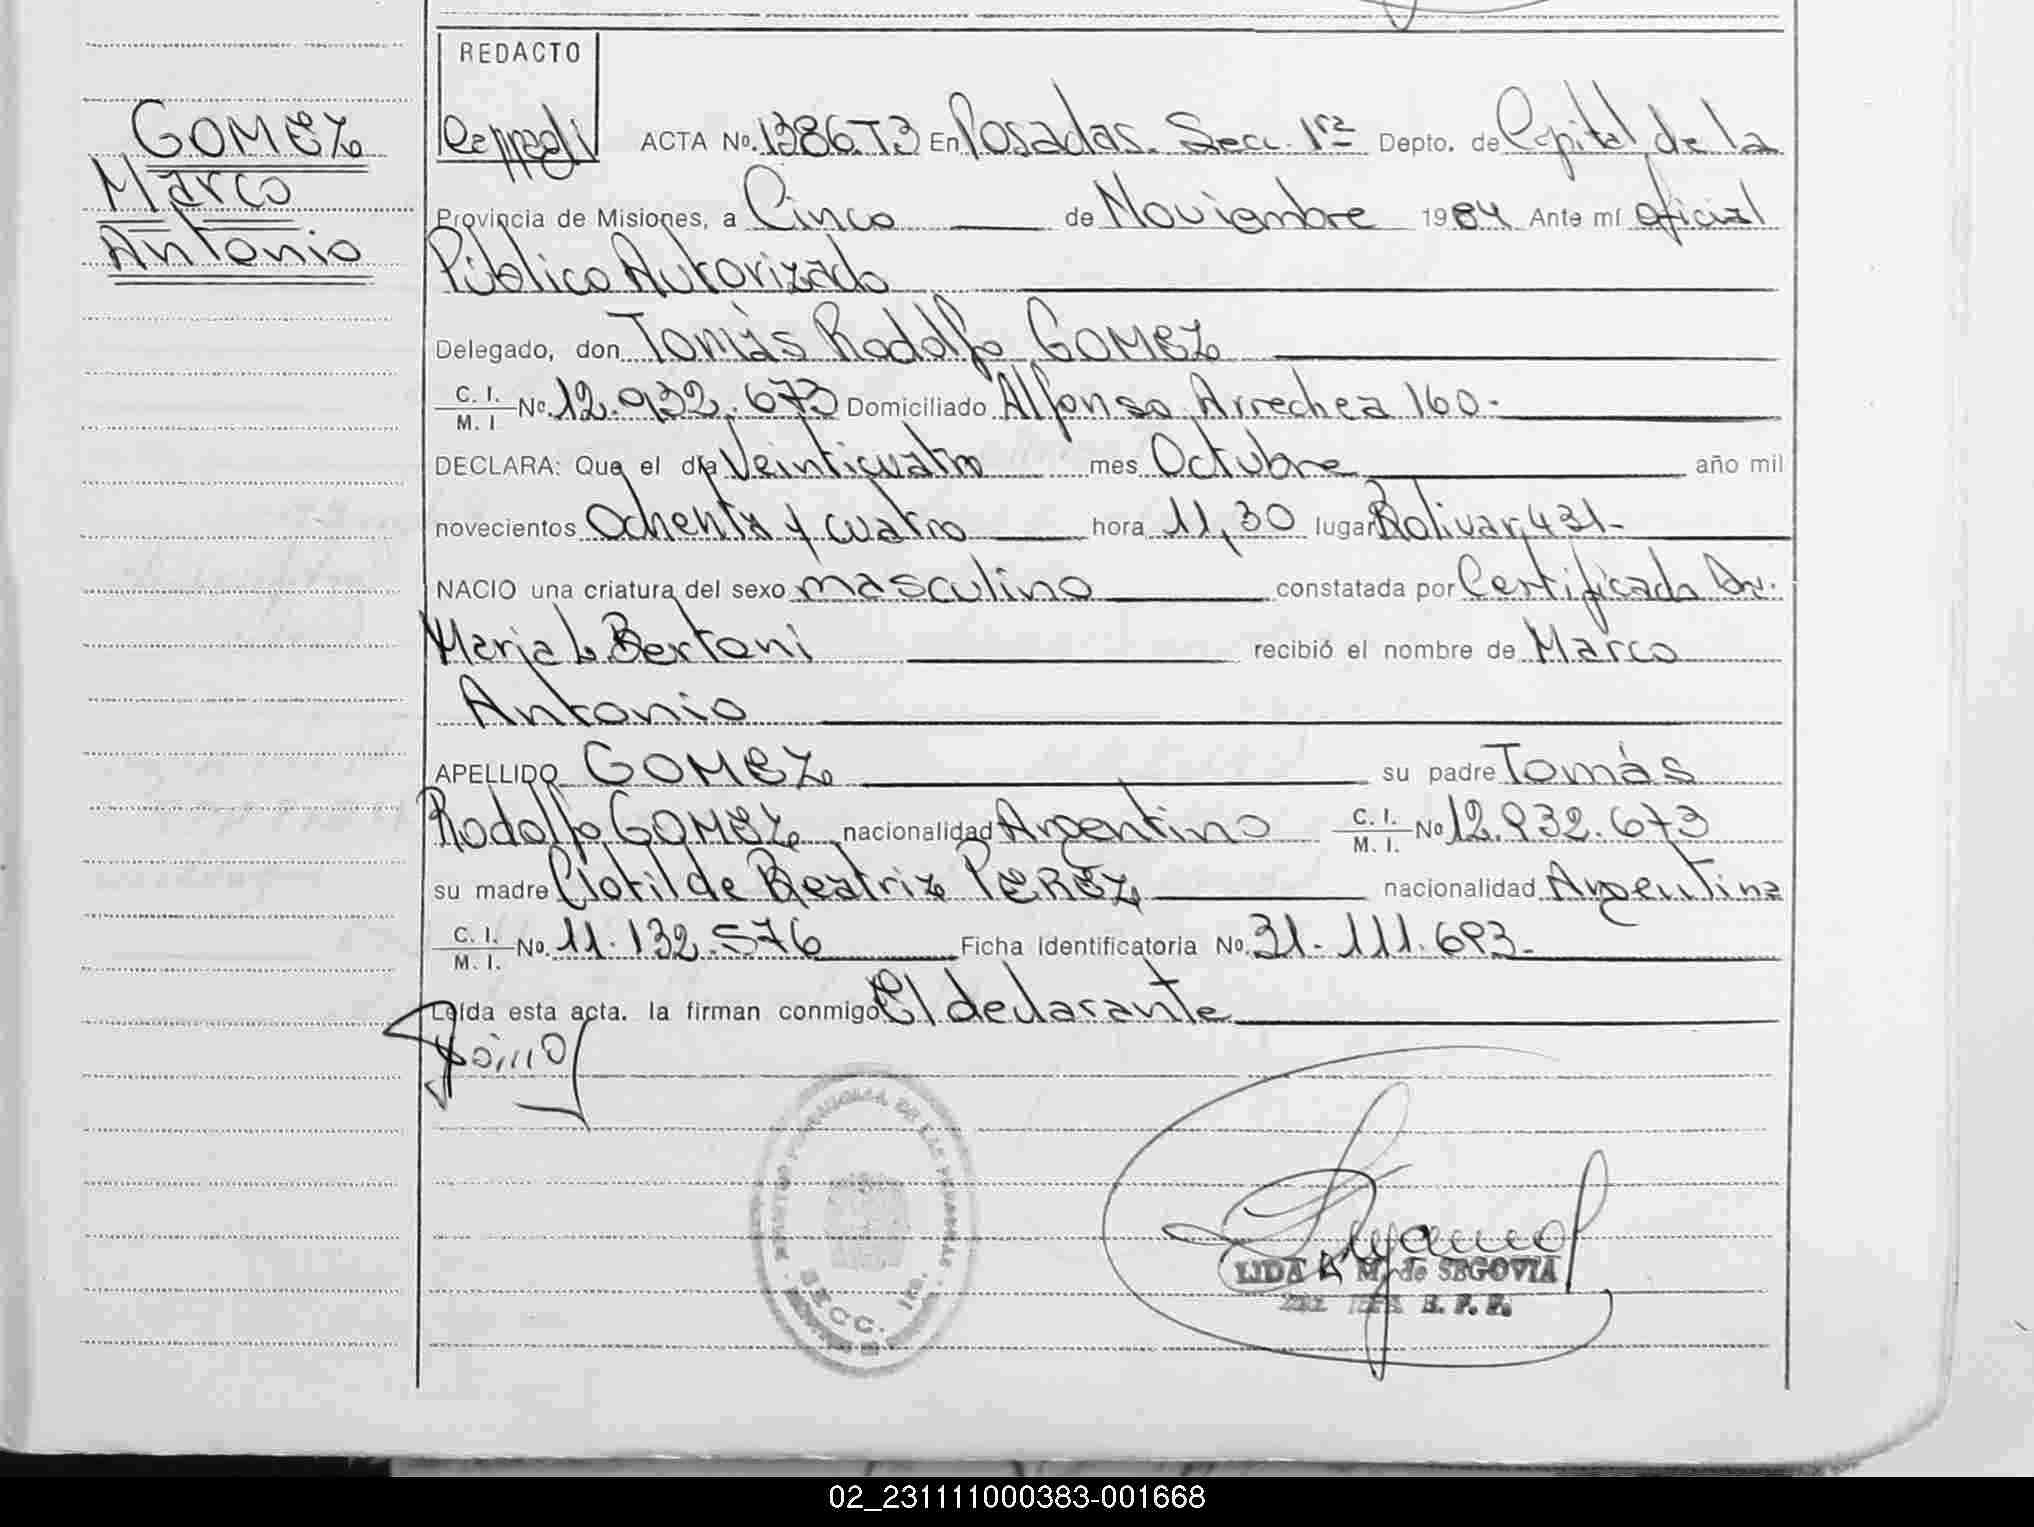 REDACTO
GOMEZ
Marco
Antonio
ACTA No. 1386 T3 En Posadas. Secc. 1ra Depto. de Capital de la
Provincia de Misiones, a Cinco de Noviembre 1984 Ante mí oficial
Público Autorizado
Delegado, don Tomás Rodolfo GOMEZ
C. I. M. I No. 12.932.673 Domiciliado Alfonso Arrechea 160.
DECLARA: Que el día Veinticuatro mes Octubre año mil
novecientos Ochenta y cuatro hora 11,30 lugar Bolivar 431-
NACIO una criatura del sexo masculino constatada por Certificado Dr.
Maria L. Bertoni recibió el nombre de Marco
Antonio
APELLIDO GOMEZ su padre Tomás
Rodolfo GOMEZ nacionalidad Argentino C. I. M. I. No 12.932.673
su madre Clotilde Beatriz PEREZ nacionalidad Argentina
C. I. M. I. No. 11.132.576 Ficha Identificatoria No. 31.111.693-
Leída esta acta. la firman conmigo El declarante
SECC. 1ra.
LIDA A M. de SEGOVIA
02_231111000383-001668